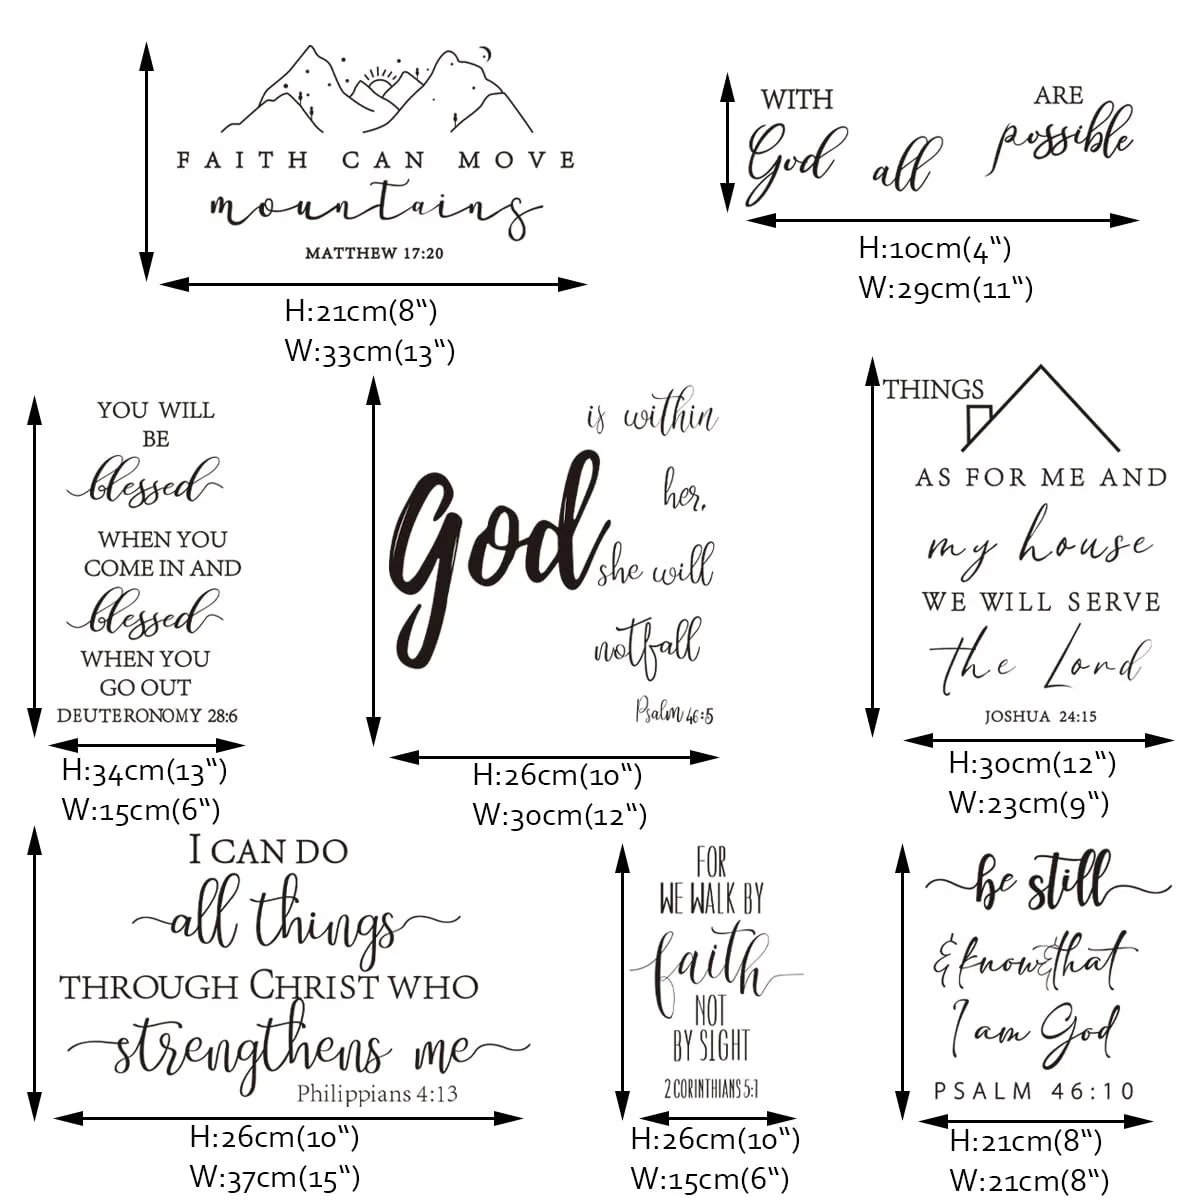 FAITH CAN MOVE
mountains
MATTHEW 17:20
H:21cm(8“)
W:33cm(13“)
WITH
God all
ARE
possible
H:10cm(4“)
W:29cm(11“)
YOU WILL
BE
blessed
WHEN YOU
COME IN AND
blessed
WHEN YOU
GO OUT
DEUTERONOMY 28:6
H:34cm(13“)
W:15cm(6“)
God
is within
her,
she will
not fall
Psalm 46:5
H:26cm(10“)
W:30cm(12“)
THINGS
AS FOR ME AND
my house
WE WILL SERVE
the Lord
JOSHUA 24:15
H:30cm(12“)
W:23cm(9“)
I CAN DO
all things
THROUGH CHRIST WHO
strengthens me
Philippians 4:13
H:26cm(10“)
W:37cm(15“)
FOR
WE WALK BY
faith
NOT
BY SIGHT
2 CORINTHIANS 5:7
H:26cm(10“)
W:15cm(6“)
be still
& know & that
I am God
PSALM 46:10
H:21cm(8“)
W:21cm(8“)